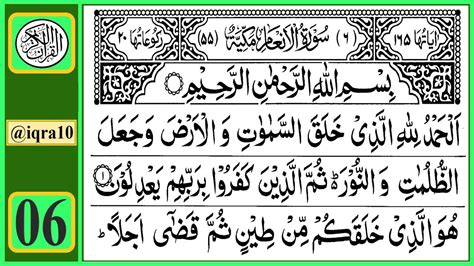 القرآن الكريم
@iqra10
06
اٰیَاتُهَا ١٦٥ (٦) سُوْرَةُ الْاَنْعَامِ مَكِّیَّةٌ (٥٥) رُكُوْعَاتُهَا ٢٠
بِسْمِ اللّٰهِ الرَّحْمٰنِ الرَّحِیْمِ
اَلْحَمْدُ لِلّٰهِ الَّذِیْ خَلَقَ السَّمٰوٰتِ وَ الْاَرْضَ وَجَعَلَ
الظُّلُمٰتِ وَ النُّوْرَ ؕ ثُمَّ الَّذِیْنَ كَفَرُوْا بِرَبِّهِمْ یَعْدِلُوْنَ ١
هُوَ الَّذِیْ خَلَقَكُمْ مِّنْ طِیْنٍ ثُمَّ قَضٰۤی اَجَلًا ؕ